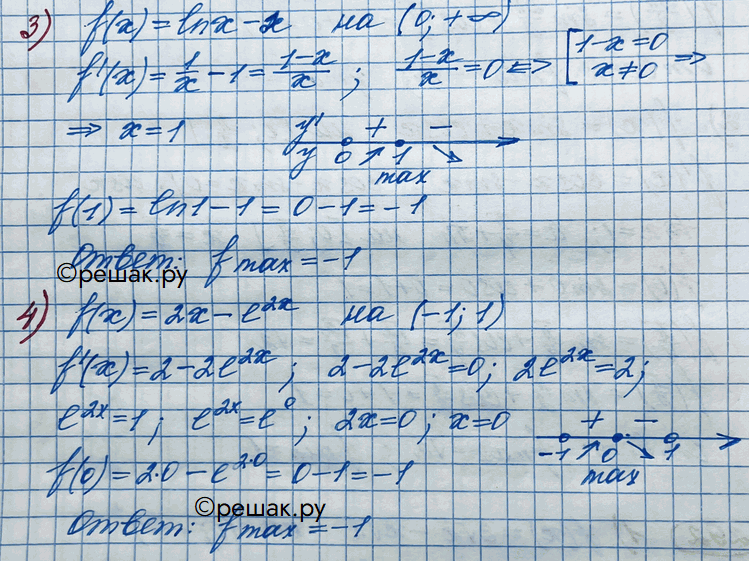 3) f(x) = lnx - x на (0; +∞)
f'(x) = 1/x - 1 = (1-x)/x ; (1-x)/x = 0 <=> [1-x=0 x≠0 =>
=> x=1 y' + -
y 0 ↗ 1 ↘
max
f(1) = ln1 - 1 = 0 - 1 = -1
Ответ: fmax = -1
©решак.ру
4) f(x) = 2x - e^2x на (-1; 1)
f'(x) = 2 - 2e^2x ; 2 - 2e^2x = 0 ; 2e^2x = 2 ;
e^2x = 1 ; e^2x = e^0 ; 2x = 0 ; x = 0 + -
-1 ↗ 0 ↘ 1
max
f(0) = 2·0 - e^2·0 = 0 - 1 = -1
©решак.ру
Ответ: fmax = -1